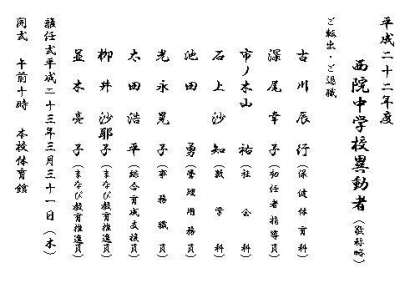 平成二十二年度
西院中学校異動者（敬称略）
ご転出・ご退職
古川辰行（保健体育科）
深尾幸子（初任者指導員）
市ノ木山祐（社会科）
石上沙知（数学科）
池田勇（管理用務員）
光永晃子（事務職員）
太田浩平（総合育成支援員）
柳井沙耶子（まなび教育推進員）
並木亮子（まなび教育推進員）
離任式平成二十三年三月三十一日（木）
開式 午前十時 本校体育館